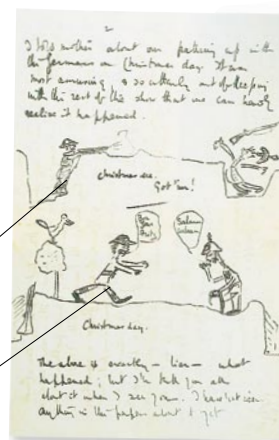 2
I told mother about our pallying up with
the Germans on Christmas day. It was
most amusing, & so utterly out of keeping
with the rest of this show that we can hardly
realise it happened.
Christmas eve.
Got 'im!
Christmas day.
The above is exactly — lies — what
happened; but I'll tell you all
about it when I see you. I have not seen
anything in the papers about it yet